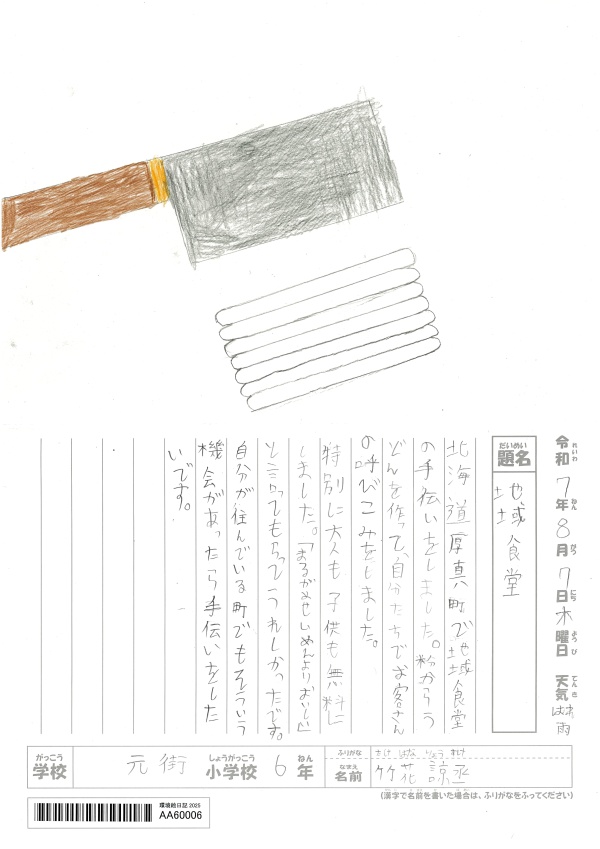 令和7年8月7日木曜日 天気 雨
れいわ ねん がつ にち ようび てんき
だいめい
題名 地域食堂
北海道厚真町で地域食堂
の手伝いをしました。粉からう
どんを作って、自分たちでお客さん
の呼びこみをしました。
特別に大人も子供も無料に
しました。「まるがめせいめんよりおいしい」
と言ってもらってうれしかったです。
自分が住んでいる町でもそういう
機会があったら手伝いをした
いです。
がっこう しょうがっこう ねん
学校 元街 小学校 6年
ふりがな たけ はな りょう すけ
なまえ
名前 竹花 諒丞
(漢字で名前を書いた場合は、ふりがなをふってください)
環境絵日記 2025
AA60006